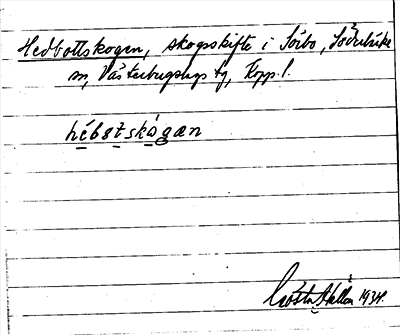 Hedbottskogen, skogsskifte i Sörbo, Söderbärke
sn, Västerbergslags tg, Kopp. l.
hébɛtskògæn
Gösta 1934.